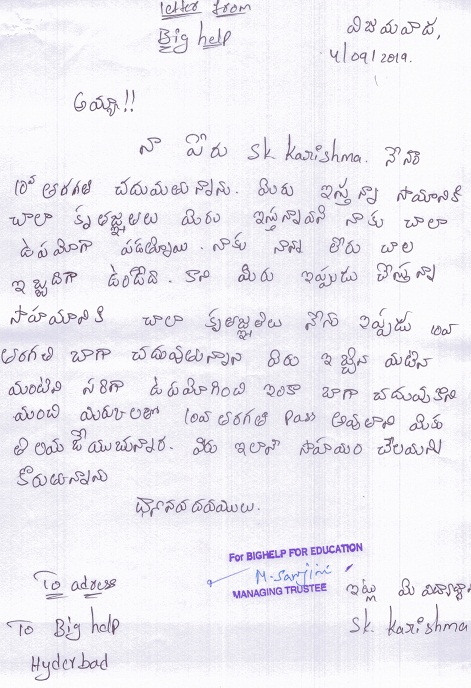 letter from
Big help
విజయవాడ,
4/09/2019.
అయ్యా!!
నా పేరు Sk Karishma. నేను
10వ తరగతి చదువుతున్నాను. మీరు ఇస్తున్నా సాయానికి
చాలా కృతజ్ఞతలు మీరు ఇస్తున్నావి నాకు చాలా
ఉపయోగా పడత్నాయి. నాకు నాన్న లేరు చాల
ఇబ్బదిగా ఉండేది. కాని మీరు ఇప్పుడు చేస్తున్నా
సాహయానికి చాలా కృతజ్ఞతలు నేను ఇప్పుడు 10వ
తరగతి బాగా చదువుతున్నాన మీరు ఇచ్చిన
సరిగా ఉపయోగించి ఇంకా బాగా చదువుకుని
మంచి 10వ తరగతి Pass అవుతానని మీకు
తెలియ జేయుచున్నార. మీరు ఇలానే సాహయం చేయలని
కోరుతున్నాను
ధాన్యవాదదములు.
For BIGHELP FOR EDUCATION
MANAGING TRUSTEE
To adress
To Big help
Hyderbad
ఇట్లు మీ విద్యార్థి
Sk. Karishma